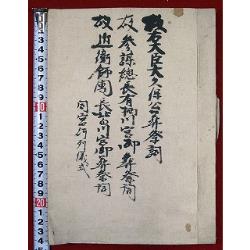 故右大臣大久保公葬祭詞
故参謀総長有栖川宮御葬祭詞
故近衛師團長北白川宮御葬祭詞
同宮行列儀式
10
20